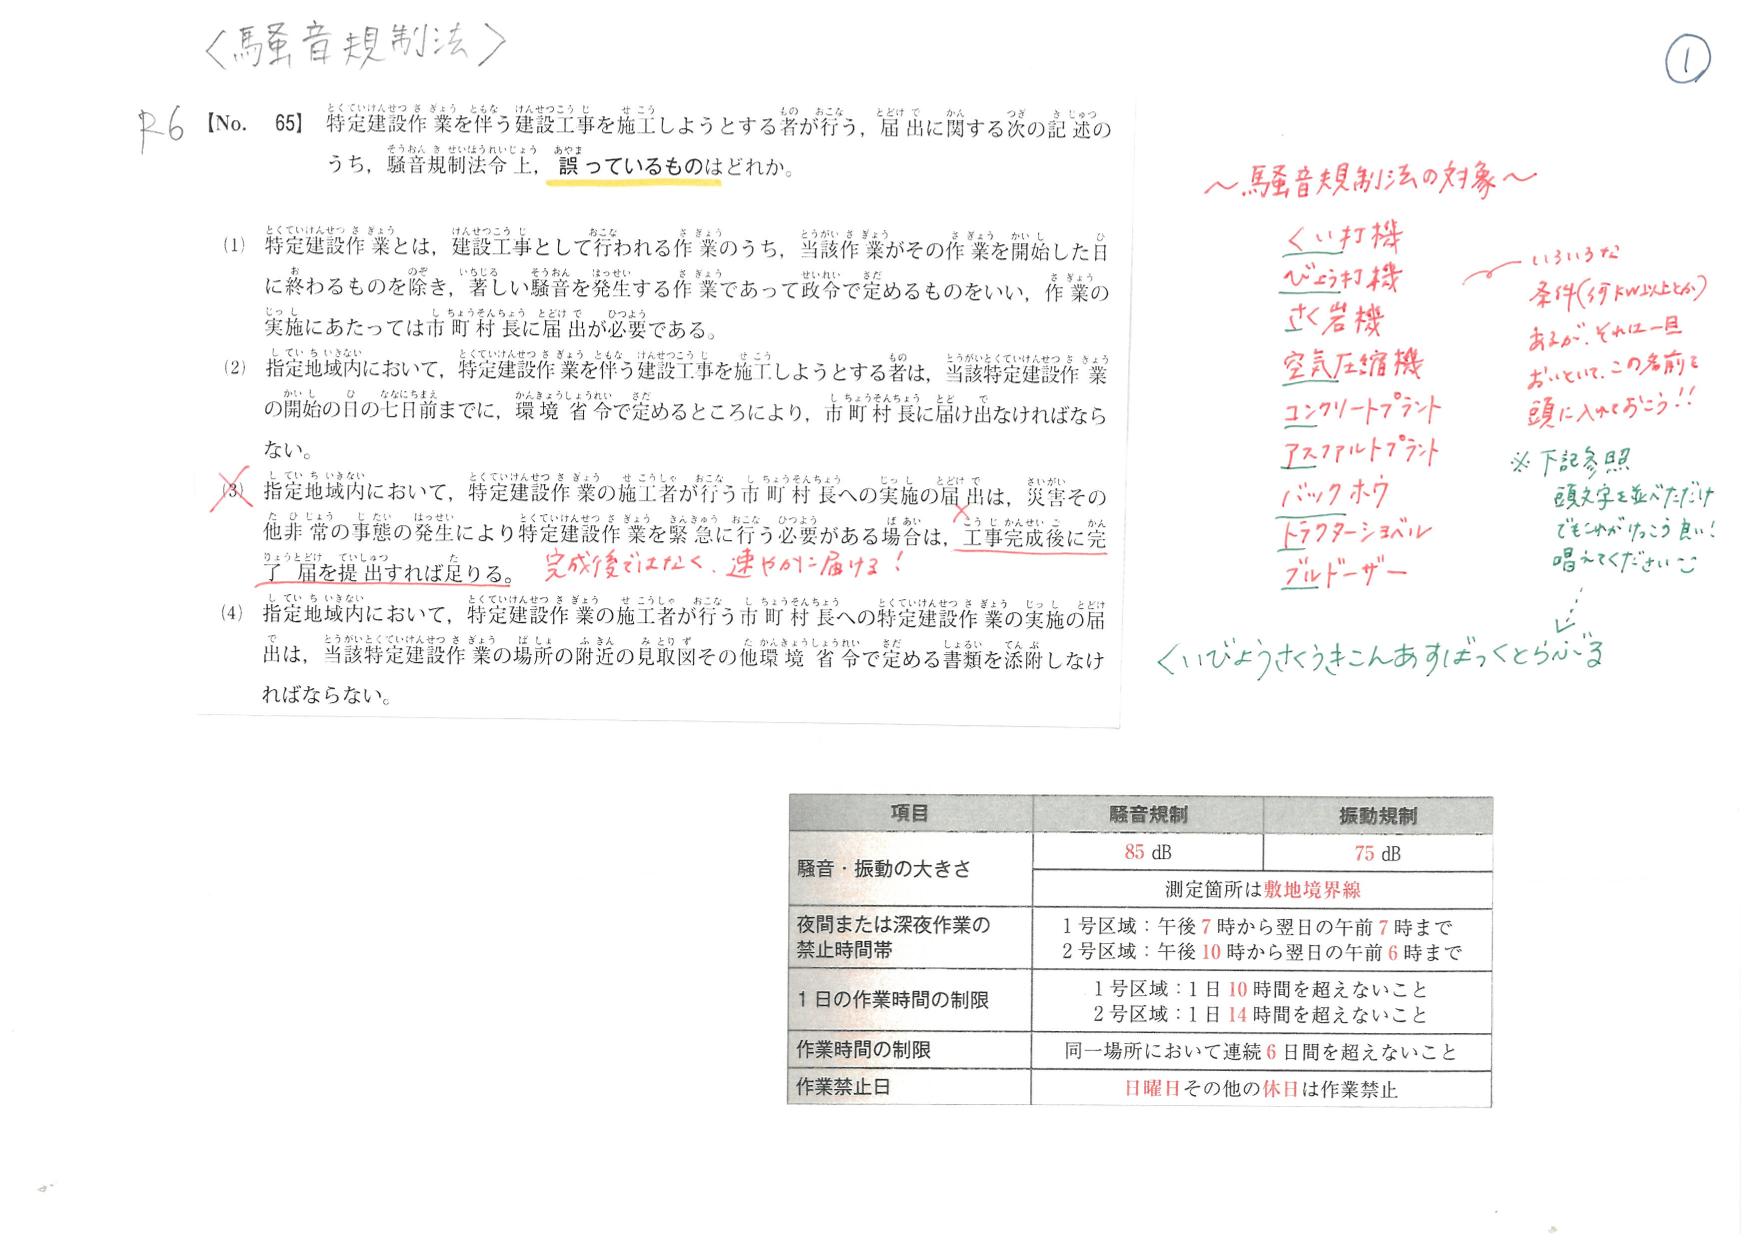 〈騒音規制法〉
①
R6 【No. 65】 特定建設作業を伴う建設工事を施工しようとする者が行う，届出に関する次の記述の
うち，騒音規制法令上，誤っているものはどれか。
(1) 特定建設作業とは，建設工事として行われる作業のうち，当該作業がその作業を開始した日
に終わるものを除き，著しい騒音を発生する作業であって政令で定めるものをいい，作業の
実施にあたっては市町村長に届出が必要である。
(2) 指定地域内において，特定建設作業を伴う建設工事を施工しようとする者は，当該特定建設作業
の開始の日の七日前までに，環境省令で定めるところにより，市町村長に届け出なければなら
ない。
(3) 指定地域内において，特定建設作業の施工者が行う市町村長への実施の届出は，災害その
他非常の事態の発生により特定建設作業を緊急に行う必要がある場合は，工事完成後に完
了届を提出すれば足りる。 完成後ではなく、速やかに届ける！
(4) 指定地域内において，特定建設作業の施工者が行う市町村長への特定建設作業の実施の届
出は，当該特定建設作業の場所の附近の見取図その他環境省令で定める書類を添附しなけ
ればならない。
～騒音規制法の対象～
くい打機
びょう打機
さく岩機
空気圧縮機
コンクリートプラント
アスファルトプラント
バックホウ
トラクターショベル
ブルドーザー
いろいろな
条件(何kW以上とか)
あるが、それは一旦
おいといて、この名前を
頭に入れておこう!!
※下記参照
頭文字を並べただけ
でもこれがけっこう良い！
唱えてください
くいびょうさくうきこんあすばっくとらぶる
項目 騒音規制 振動規制
騒音・振動の大きさ 85 dB 75 dB
測定箇所は敷地境界線
夜間または深夜作業の
禁止時間帯
1号区域：午後7時から翌日の午前7時まで
2号区域：午後10時から翌日の午前6時まで
1日の作業時間の制限
1号区域：1日10時間を超えないこと
2号区域：1日14時間を超えないこと
作業時間の制限 同一場所において連続6日間を超えないこと
作業禁止日 日曜日その他の休日は作業禁止